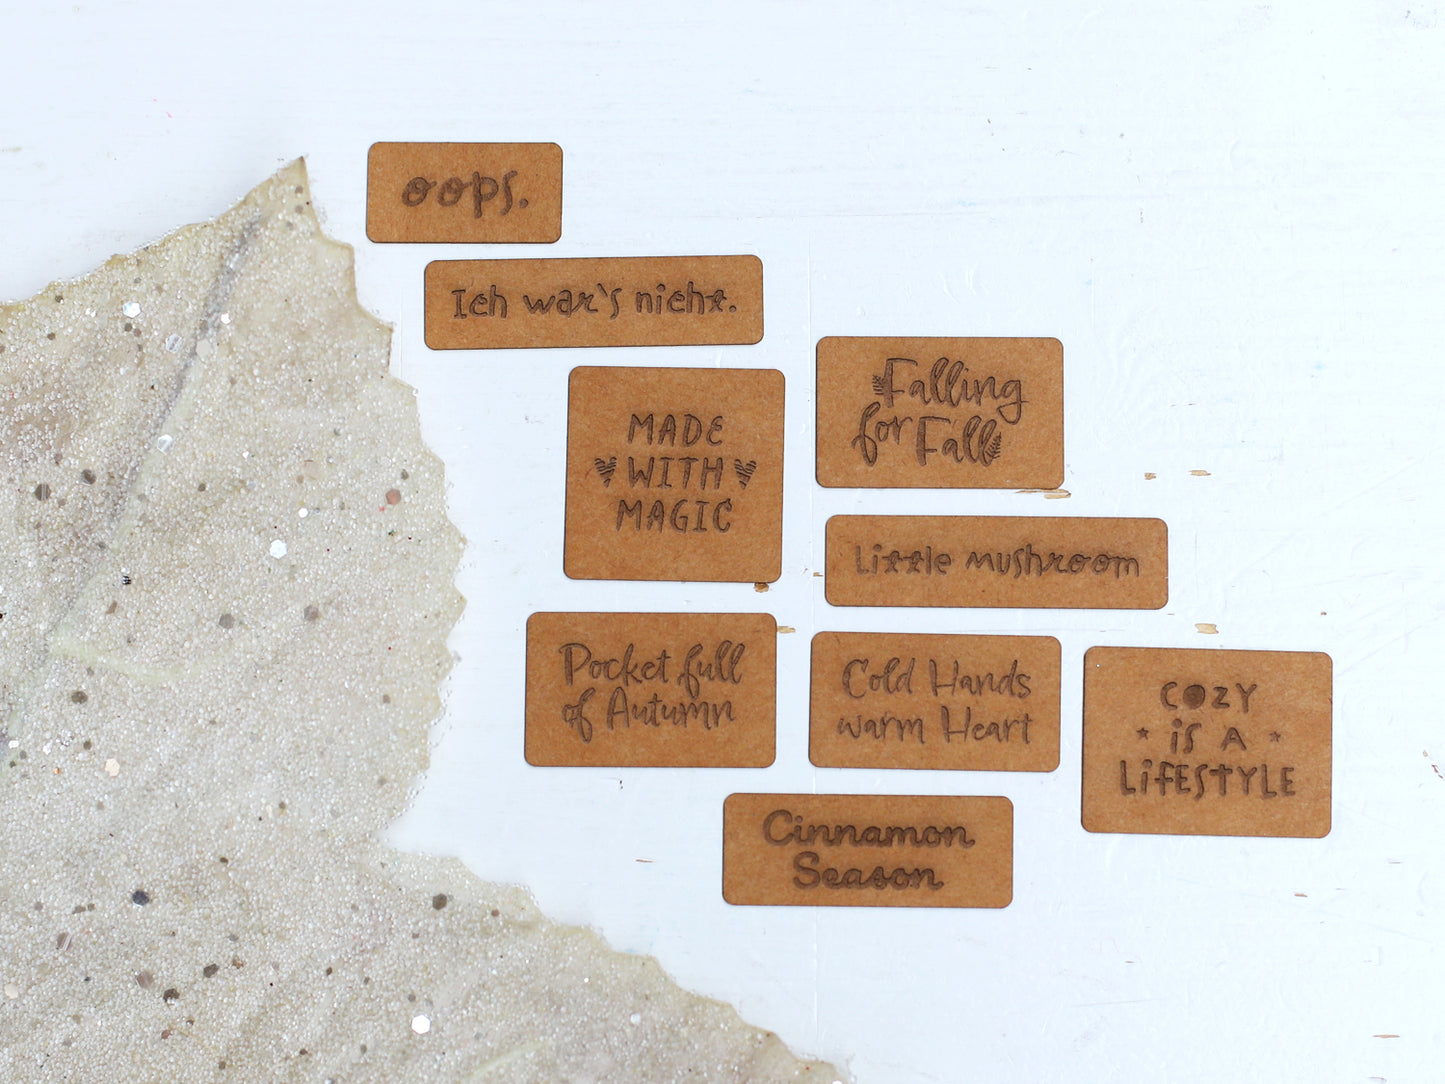 oops.
Ich war's nicht.
MADE
WITH
MAGIC
Falling
for Fall
Little mushroom
Pocket full
of Autumn
Cold Hands
warm Heart
COZY
iS A
LiFESTYLE
Cinnamon
Season